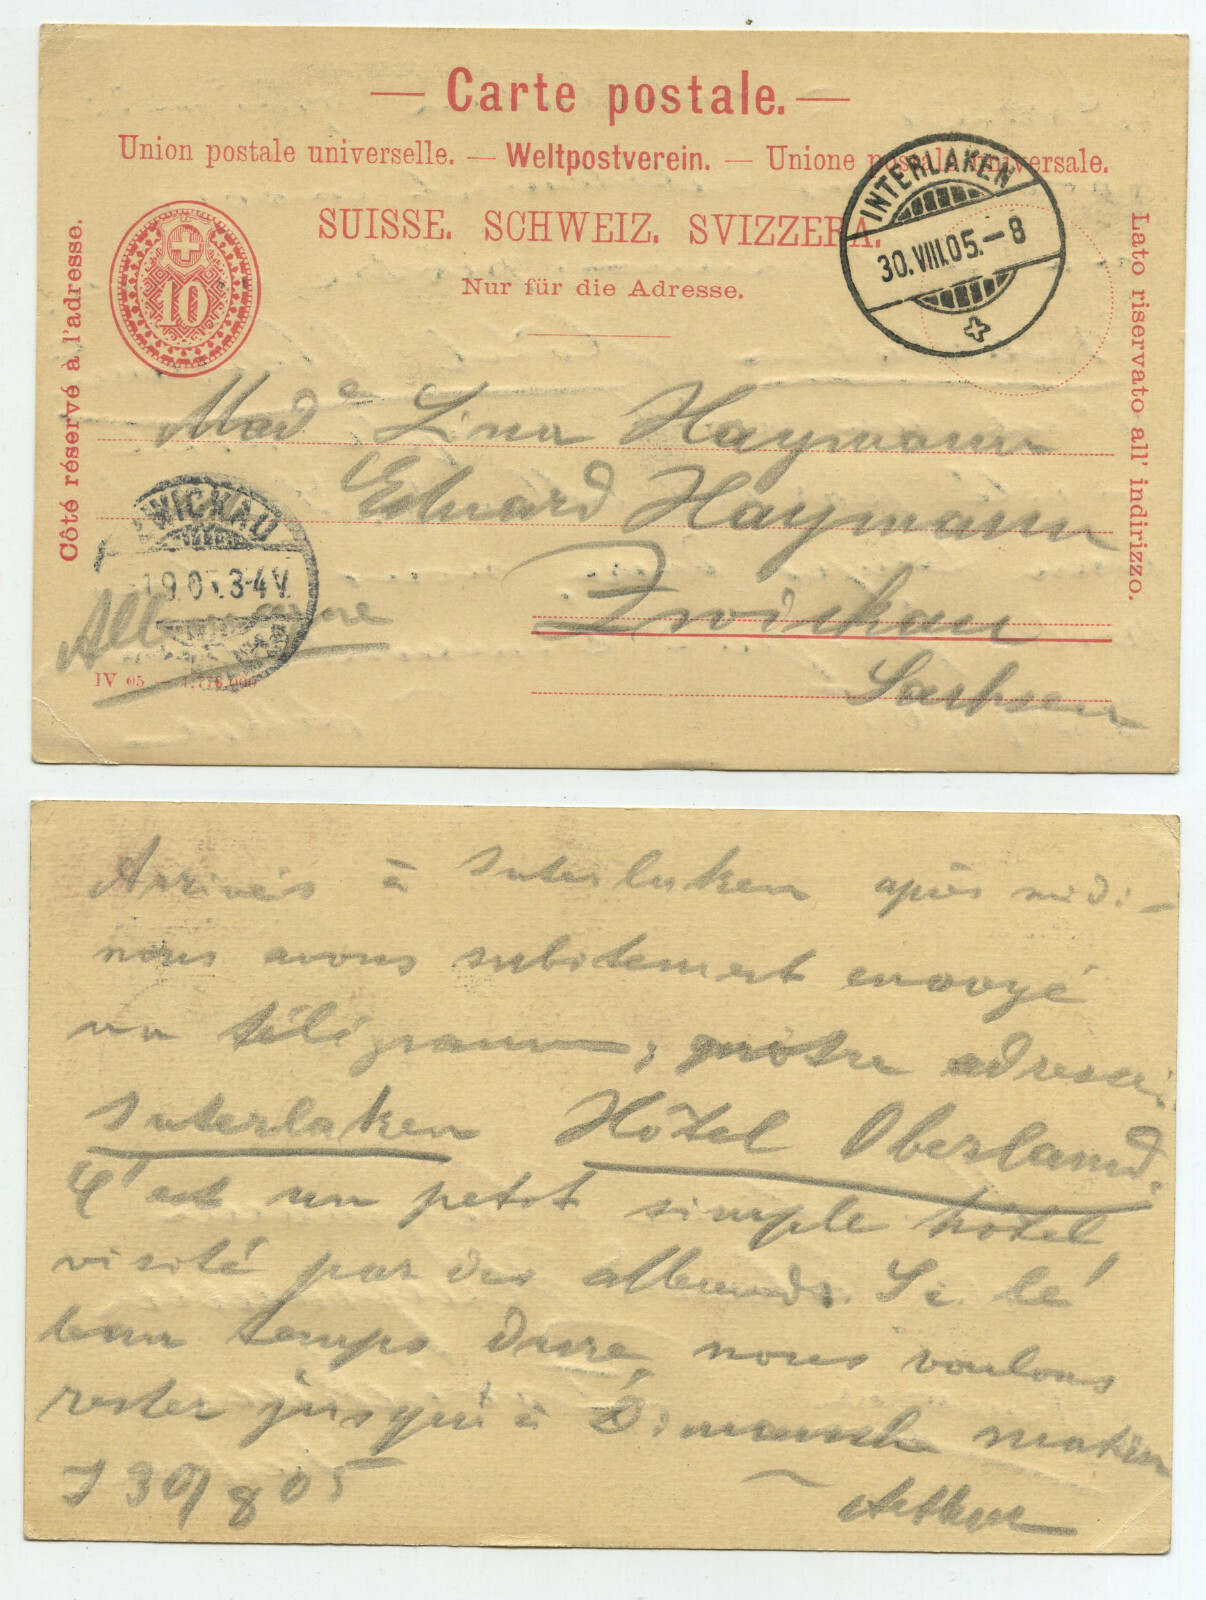 — Carte postale. —
Union postale universelle. — Weltpostverein. — Unione postale universale.
SUISSE. SCHWEIZ. SVIZZERA.
Nur für die Adresse.
Côté réservé à l'adresse.
Lato riservato all' indirizzo.
10
INTERLAKEN
30.VIII.05.-8
Made Lina Haymann
Eduard Haymann
Zwickau
Sachsen
ZWICKAU
1.9.0 3-4V.
Allemagne
IV 05 — 1,776,000
Arrivés à Interlaken après midi –
nous avons subitement envoyé
un télégramm, nôtre adresse:
Interlaken Hôtel Oberland.
C'est un petit simple hôtel,
visité par des allemands. Si le
beau temps dure, nous voulons
rester jusqu'à Dimansche matin
J 30/8 05
Arthur